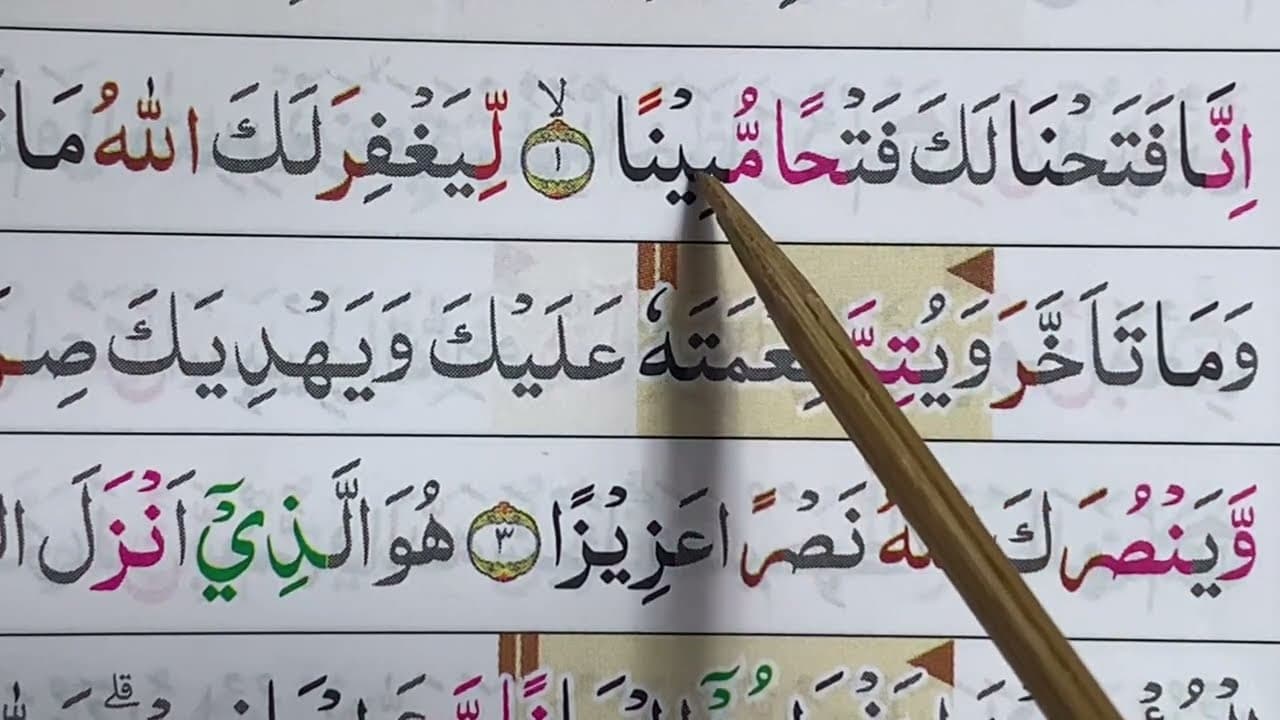 اِنَّا فَتَحْنَا لَكَ فَتْحًا مُّبِيْنًا ۙ‏﴿۱﴾ لِّيَغْفِرَ لَكَ اللّٰهُ مَا
وَمَا تَاَخَّرَ وَيُتِمَّ نِعْمَتَهٗ عَلَيْكَ وَيَهْدِيَكَ
وَّيَنْصُرَكَ اللّٰهُ نَصْرًا عَزِيْزًا ﴿۳﴾ هُوَ الَّذِيْۤ اَنْزَلَ